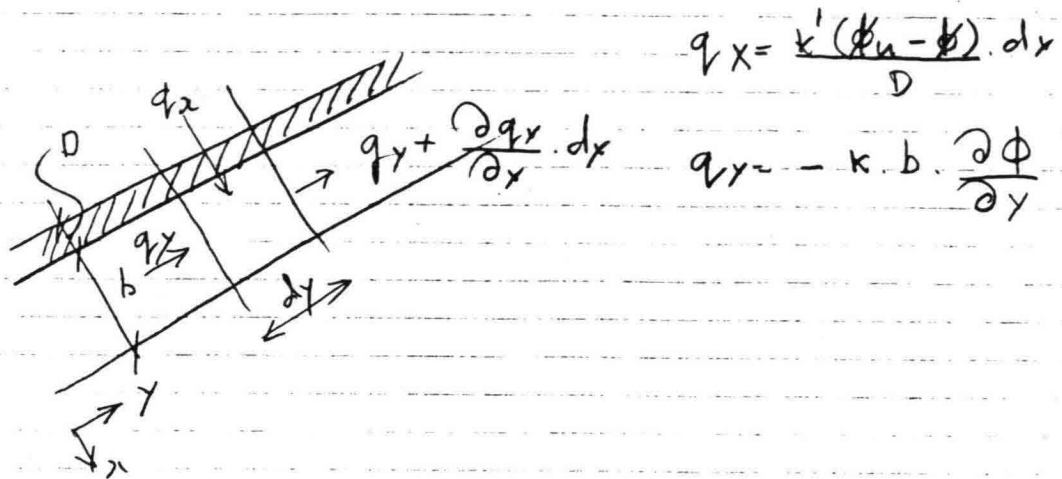 qx = k'(ϕu - ϕ) . dx / D
qx
D
qy + ∂qy/∂x . dx
qy = - k . b . ∂ϕ/∂y
qy
b
dy
y
x